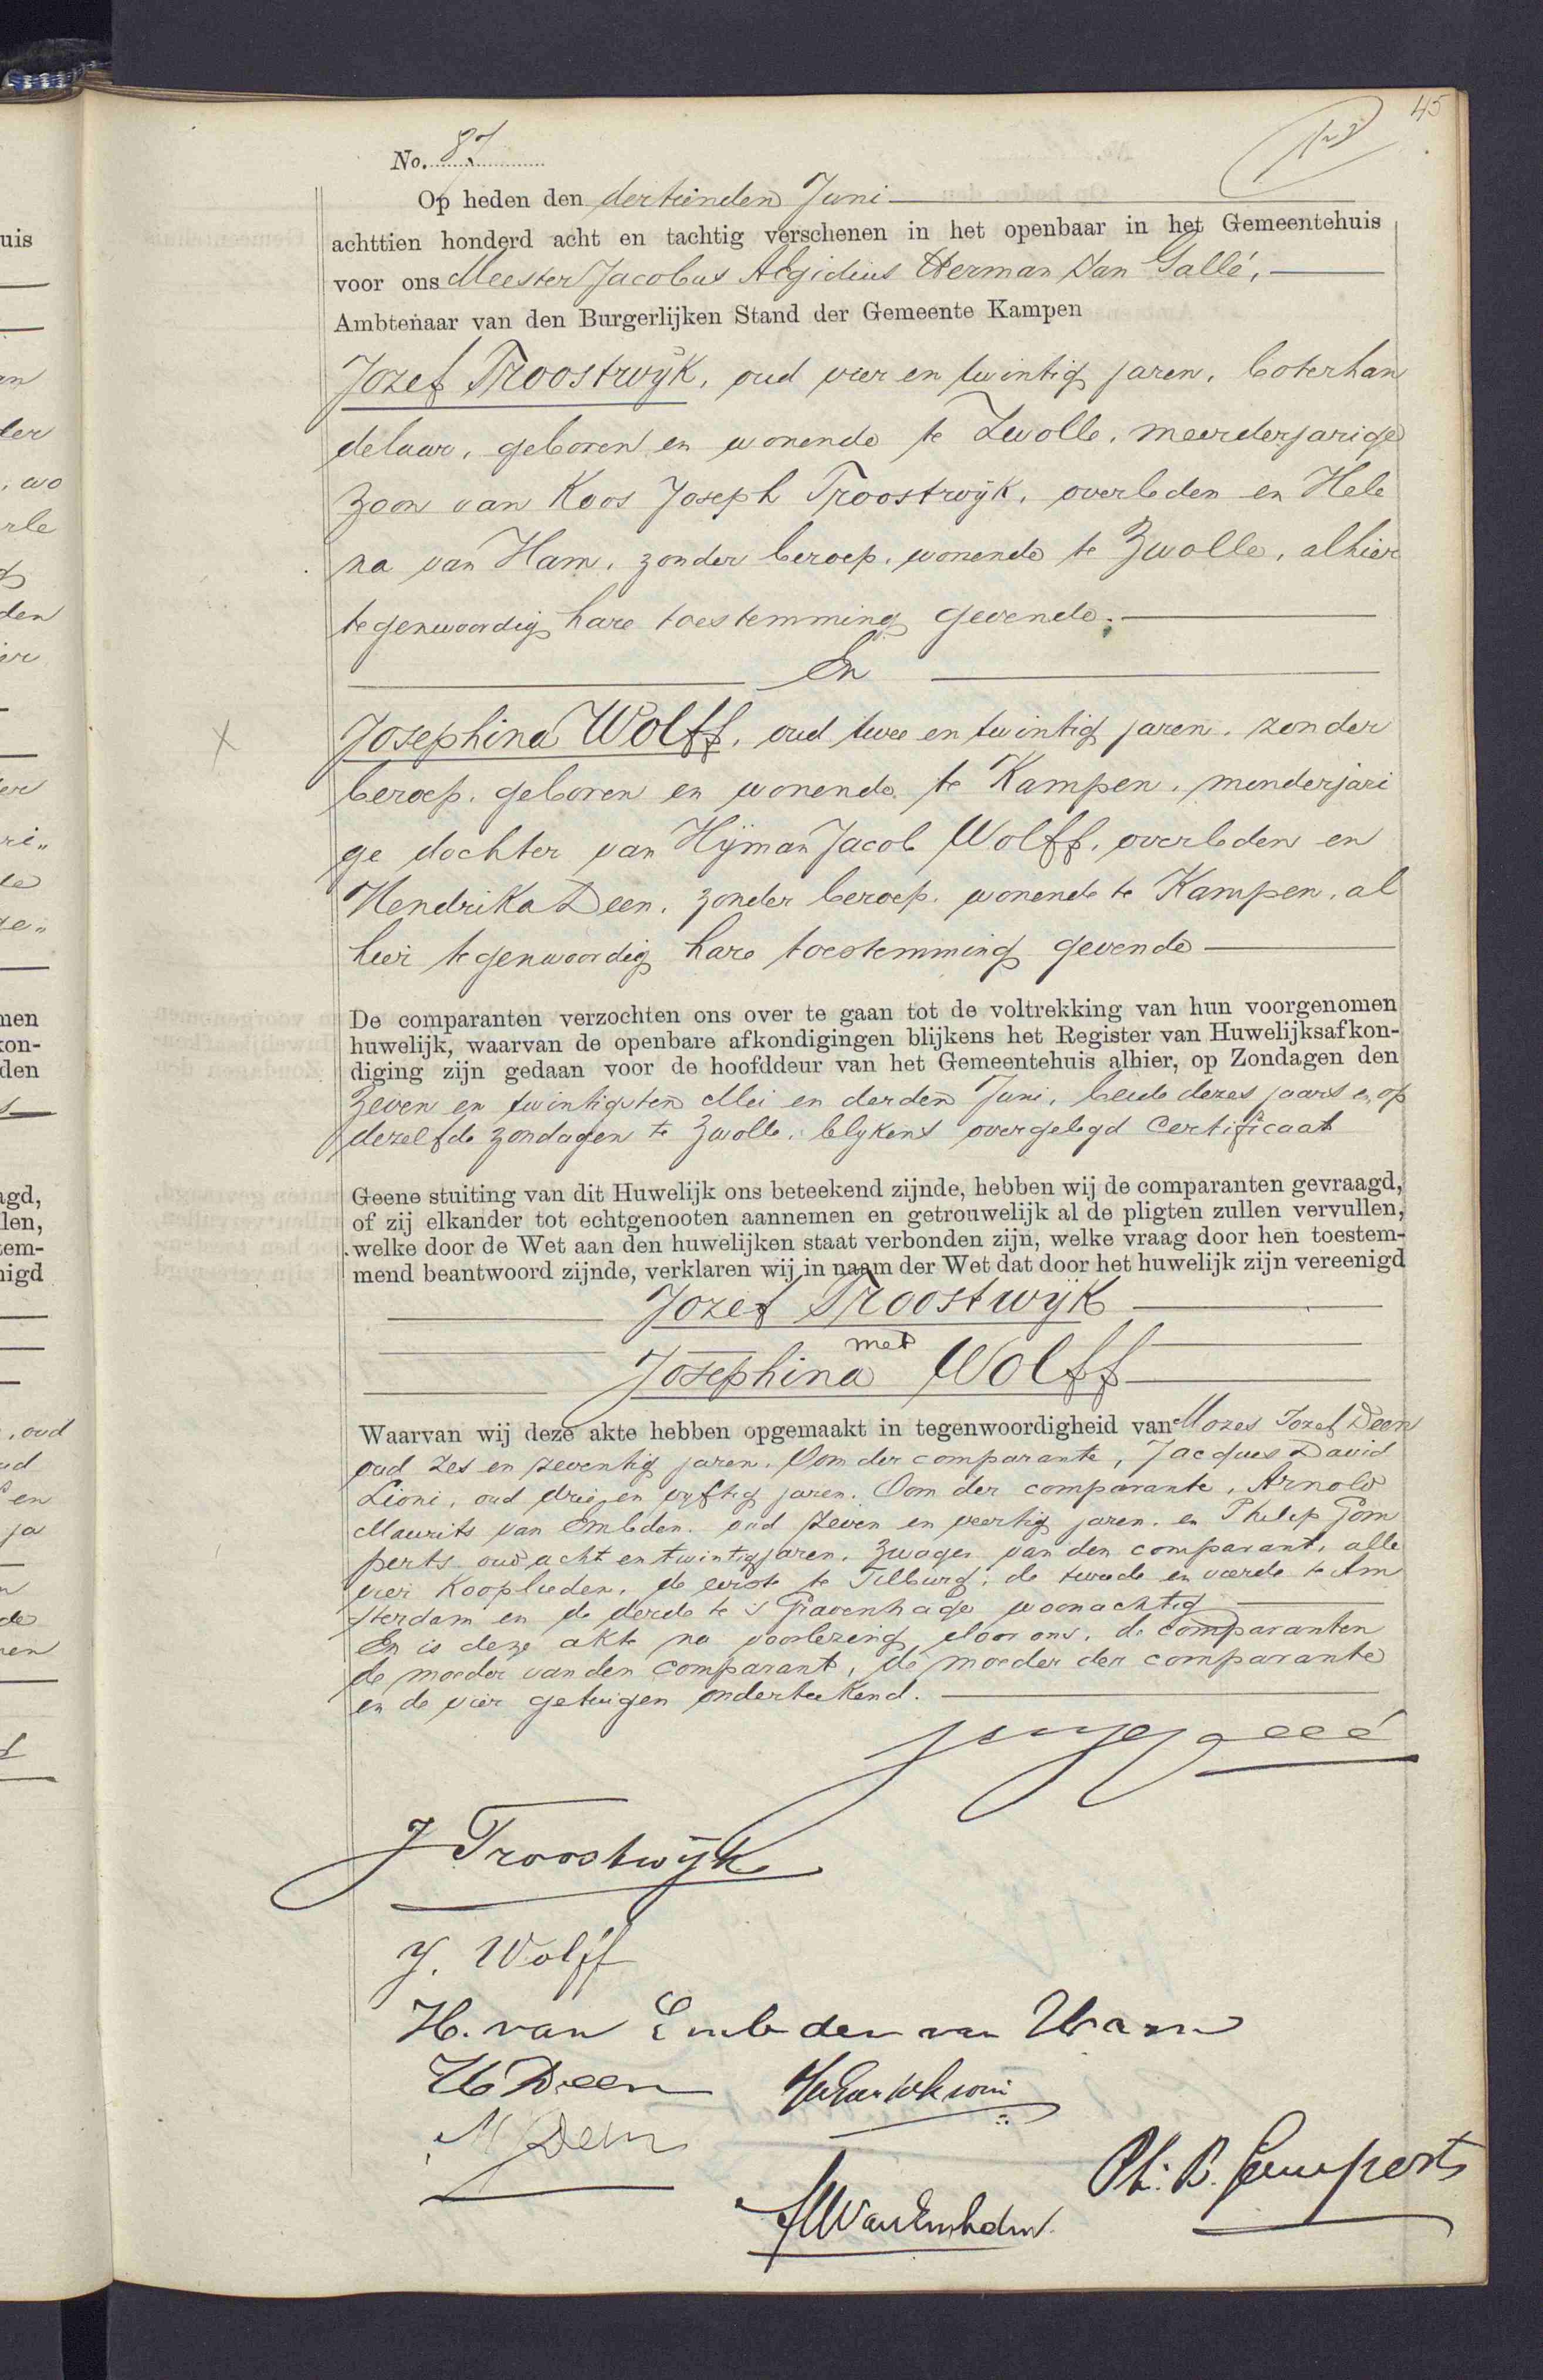 45
No. 87
Op heden den dertienden Juni
achttien honderd acht en tachtig verschenen in het openbaar in het Gemeentehuis
voor ons Meester Jacobus Aegidius Herman van Gallé,
Ambtenaar van den Burgerlijken Stand der Gemeente Kampen
Jozef Troostwijk, oud vier en twintig jaren, boterhan
delaar, geboren en wonende te Zwolle, meerderjarige
zoon van Koos Joseph Troostwijk, overleden en Hele
na van Ham, zonder beroep, wonende te Zwolle, alhier
tegenwoordig hare toestemming gevende.
En
Josephina Wolff, oud twee en twintig jaren, zonder
beroep, geboren en wonende te Kampen, minderjari
ge dochter van Hijman Jacob Wolff, overleden en
Hendrika Deen, zonder beroep, wonende te Kampen, al
hier tegenwoordig hare toestemming gevende
De comparanten verzochten ons over te gaan tot de voltrekking van hun voorgenomen
huwelijk, waarvan de openbare afkondigingen blijkens het Register van Huwelijksafkon-
diging zijn gedaan voor de hoofddeur van het Gemeentehuis alhier, op Zondagen den
zeven en twintigsten Mei en derden Juni, beide dezes jaars en op
dezelfde zondagen te Zwolle, blijkens overgelegd Certificaat
Geene stuiting van dit Huwelijk ons beteekend zijnde, hebben wij de comparanten gevraagd,
of zij elkander tot echtgenooten aannemen en getrouwelijk al de pligten zullen vervullen,
welke door de Wet aan den huwelijken staat verbonden zijn, welke vraag door hen toestem-
mend beantwoord zijnde, verklaren wij in naam der Wet dat door het huwelijk zijn vereenigd
Jozef Troostwijk
met
Josephina Wolff
Waarvan wij deze akte hebben opgemaakt in tegenwoordigheid van Mozes Jozef Deen
oud zes en zeventig jaren, Oom der comparante, Jacques David
Lioni, oud drie en vijftig jaren, Oom der comparante, Arnold
Maurits van Embden, oud zeven en veertig jaren, en Philip Gom
perts oud acht en twintig jaren, zwager van den comparant, alle
vier Kooplieden, de eerste te Tilburg, de tweede en vierde te Am
sterdam en de derde te 's Gravenhage woonachtig
En is deze akte na voorlezing door ons, de comparanten
de moeder van den comparant, de moeder der comparante
en de vier getuigen onderteekend.
J Troostwijk
J. Wolff
H. van Embden van Ham
H Deen
M J Deen
Ph. B. Gomperts
AM van Embden